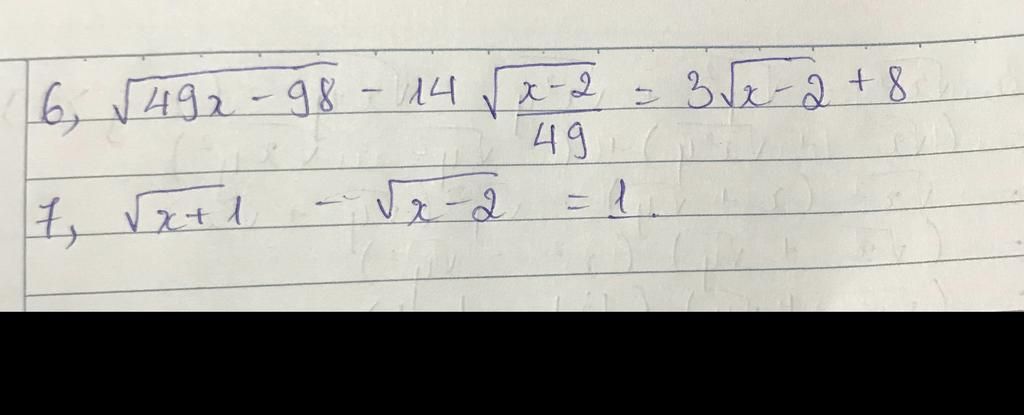 6, √(49x - 98) - 14 √((x-2)/49) = 3√(x-2) + 8
7, √(x+1) - √(x-2) = 1.